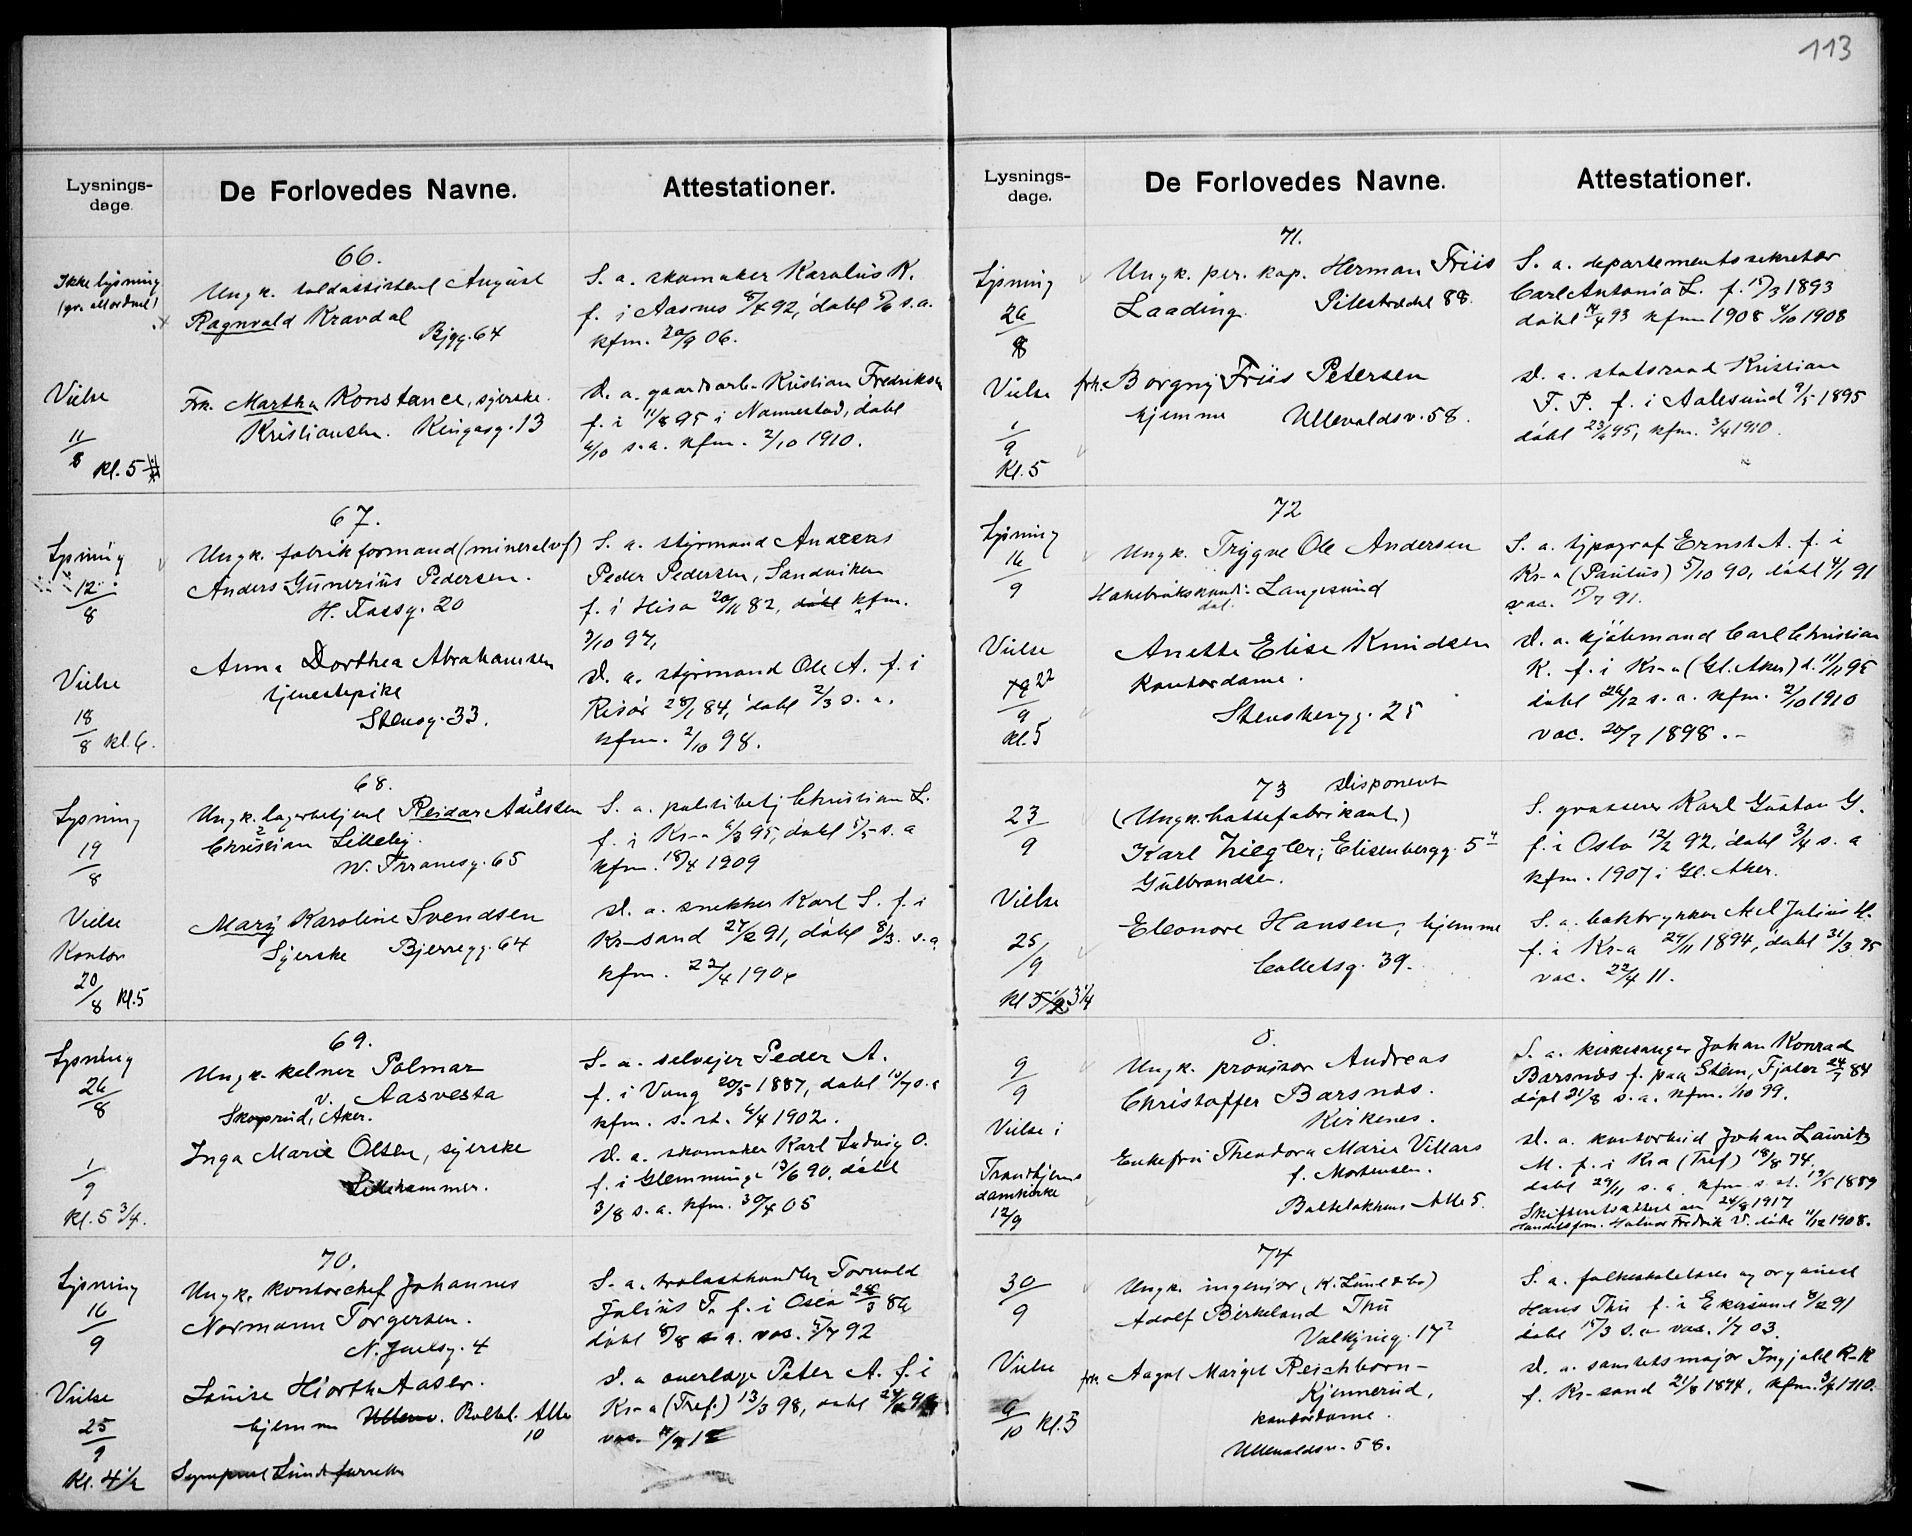 113
Lysnings-
dage.
De Forlovedes Navne.
Attestationer.
66.
Ikke lysning
Vielse
11/8 kl. 5
Ungk. toldassistent August
Ragnvald Kravdal
Bjgg. 64
Frk. Martha Konstance, syerske.
Kristiansen. Kingosg. 13
S. a. skomaker Karolius K.
f. i Aasnes 92, døbt s. a.
kfm. 06.
D. a. gaardsarb. Kristian Fredriksen
f. i 11/8 95 i Nannestad, døbt
6/10 s. a. kfm. 2/10 1910.
67.
Lysning
12/8
Vielse
18/8 kl. 6.
Ungk. fabrikformand (mineralvf)
Anders Gunerius Pedersen.
H. Tassg. 20
Anna Dorthea Abrahamsen
tjenestepike
Stensg. 33.
S. a. styrmand Andreas
Peder Pedersen, Sandviken
f. i Hisø 82, døbt kfm.
3/10 97,
D. a. styrmand Ole A. f. i
Risør 28/1 84, døbt 2/3 s. a.
kfm. 2/10 98.
68.
Lysning
19/8
Vielse
Kontor
20/8 kl. 5
Ungk. lagerbetjent Reidar Adelsten
Christian Lilleby.
W. Tranesg. 65
Mary Karoline Svendsen
Syerske Bjerregg. 64
S. a. politibetj Christian L.
f. i Kr-a 6/3 95, døbt 5/5 s. a
kfm. 18/4 1909
D. a. snekker Karl S. f. i
Kr-sand 27/2 91, døbt 8/3 s. a
kfm. 22/4 190
69.
Lysning
26/8
1/9
kl. 5 3/4.
Ungk. kelner Palmar
v. Aasvesta
Skøyrud, Aker.
Inga Marie Olsen, syerske
Lillehammer.
S. a. selveier Peder A.
f. i Vang 20/5 1887, døbt 10/7 s. a
kfm. s. st. 6/4 1902.
D. a. skomaker Karl Ludvig O.
f. i Glemminge 13/6 90, døbt
3/8 s. a. kfm. 30/4 05
70.
Lysning
16/9
Vielse
25/9
Kl. 4 1/2
Ungk. kontorchef Johannes
Normann Torgersen.
N. Juelsg. 4
Louise Hiorth Aaser.
hjemme Ullev. Baltel. Alle
10
S. a. trælasthandler Torvald
Julius T. f. i Oslo 86
døbt 8/8 s. a. vac. 5/7 92
D. a overlæge Peter A. f. i
Kr-a (Tref.) 13/3 98, døbt
vac.
Lysnings-
dage.
De Forlovedes Navne.
Attestationer.
71.
Lysning
26/8
Vielse
1/9
Kl. 5
Ungk. per. kap. Herman Friis
Laading. Pilestrædet 88.
frk. Borgny Friis Petersen
hjemme Ullevaldsv. 58.
S. a. departementssekretær
Carl Antonio L. f. 15/3 1893
døbt 93 kfm 1908 4/10 1908
D. a. statsraad Kristian
F. P. f. i Aalesund 9/5 1895
døbt 23/6 95, kfm. 3/4 1910.
72
Lysning
16/9
Vielse
19 22/9
kl. 5
Ungk. Trygve Ole Andersen
Langesund
Anette Elise Knudsen
Kontordame.
Stensbergg. 25
S. a. typograf Ernst A. f. i
Kr-a (Paulus) 5/10 90, døbt 4/1 91
vac. 15/7 91.
D. a. kjølemand Carl Christian
K. f. i Kr-a (Gl. Aker) d. 11/11 95
døbt 26/12 s. a. kfm. 2/10 1910
vac. 20/7 1898. -
73 Disponent
23/9
Vielse
25/9
kl 5 1/2 3 1/4
(Ungk. hattefabrikant)
Karl Ziegler, Elisenbergg. 5
Gulbrandsen.
Eleonore Hansen, hjemme
Colletsg. 39.
S. grosserer Karl Gustav G.
f. i Oslo 12/2 92, døbt 3/4 s. a
kfm. 1907 i Gl. Aker.
S. a. boktrykker Axel Julius H.
f. i Kr-a 24/11 1894, døbt 31/3 95
vac. 22/4 11.
0.
9/9
Vielse i
Trondhjems
domkirke
12/9
Ungk. provisor Andreas
Christoffer Barsnes.
Kirkenes.
Enkefru Theodora Marie Villars
f. Mortensen.
Balkelakkens Alle 5.
S. a. kirkesanger Johan Konrad
Barsnes f. paa Steen, Fjaler 24/7 84
døpt 31/8 s. a. kfm. 1/10 99.
D. a. kontorbud Johan Lauritz
M. f. i Kr-a (Tref) 18/8 74,
døbt 29/11 s. a. kfm s. st. 19/5 1889
Skifteretsattest av 24/8 1917
Handelsfm. Halvor Fredrik V. døde 11/12 1908.
74
30/9
Vielse
9/10 kl. 5
Ungk. ingeniør (K. Lund & Co)
Adolf Birkeland Thu
Valkyrieg. 17
frk. Aagot Margit Reichborn-
Kjennerud,
kontordame.
Ullevaldsv. 58.
S. a. folkeskolelærer og organist
Hans Thu f. i Ekersund 8/2 91
døbt 15/3 s. a vac. 1/7 03.
D. a. sanitetsmajor Ingjald R-K
f. Kr-sand 21/8 1894, kfm. 1910.